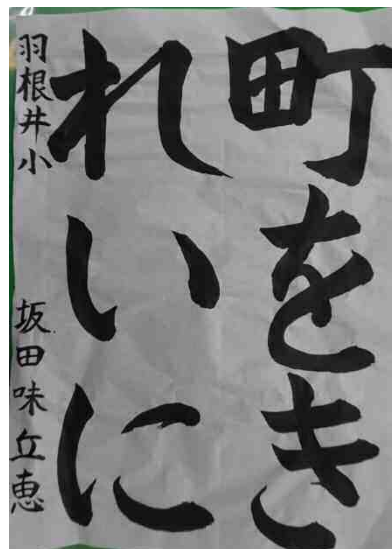 町をき
れいに
羽根井小 坂田味丘恵